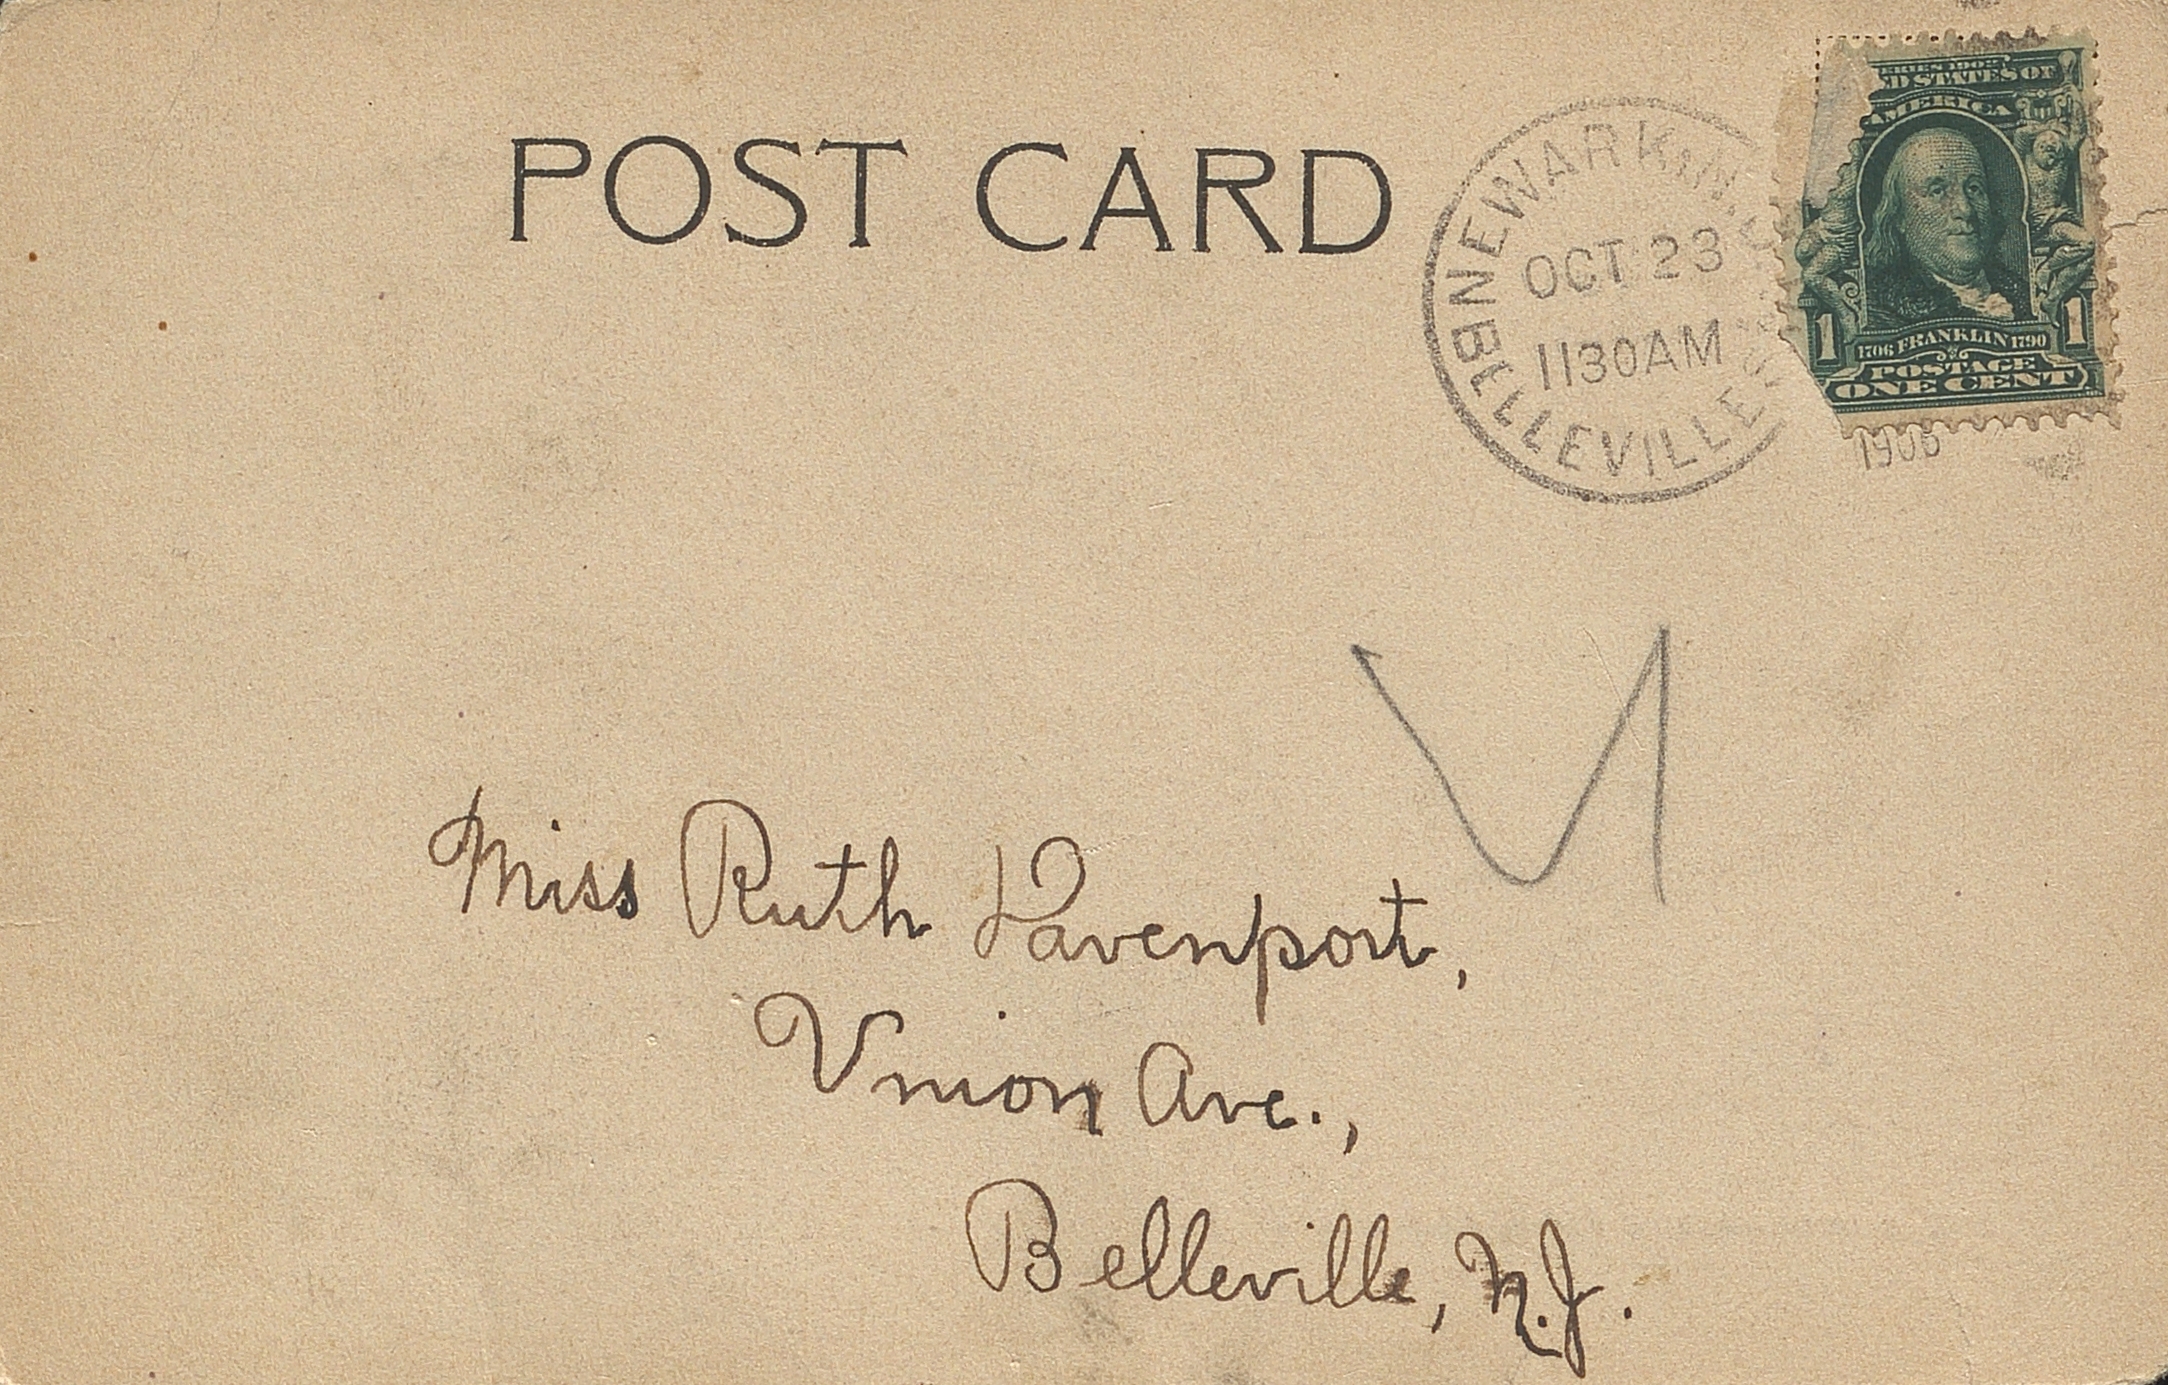 POST CARD
NEWARK, N.J.
OCT 23
1130AM
BELLEVILLE
SERIES 1902
D STATES OF
AMERICA
1 1
1706 FRANKLIN 1790
POSTAGE
ONE CENT
1906
Miss Ruth Davenport,
Union Ave.,
Belleville, N.J.